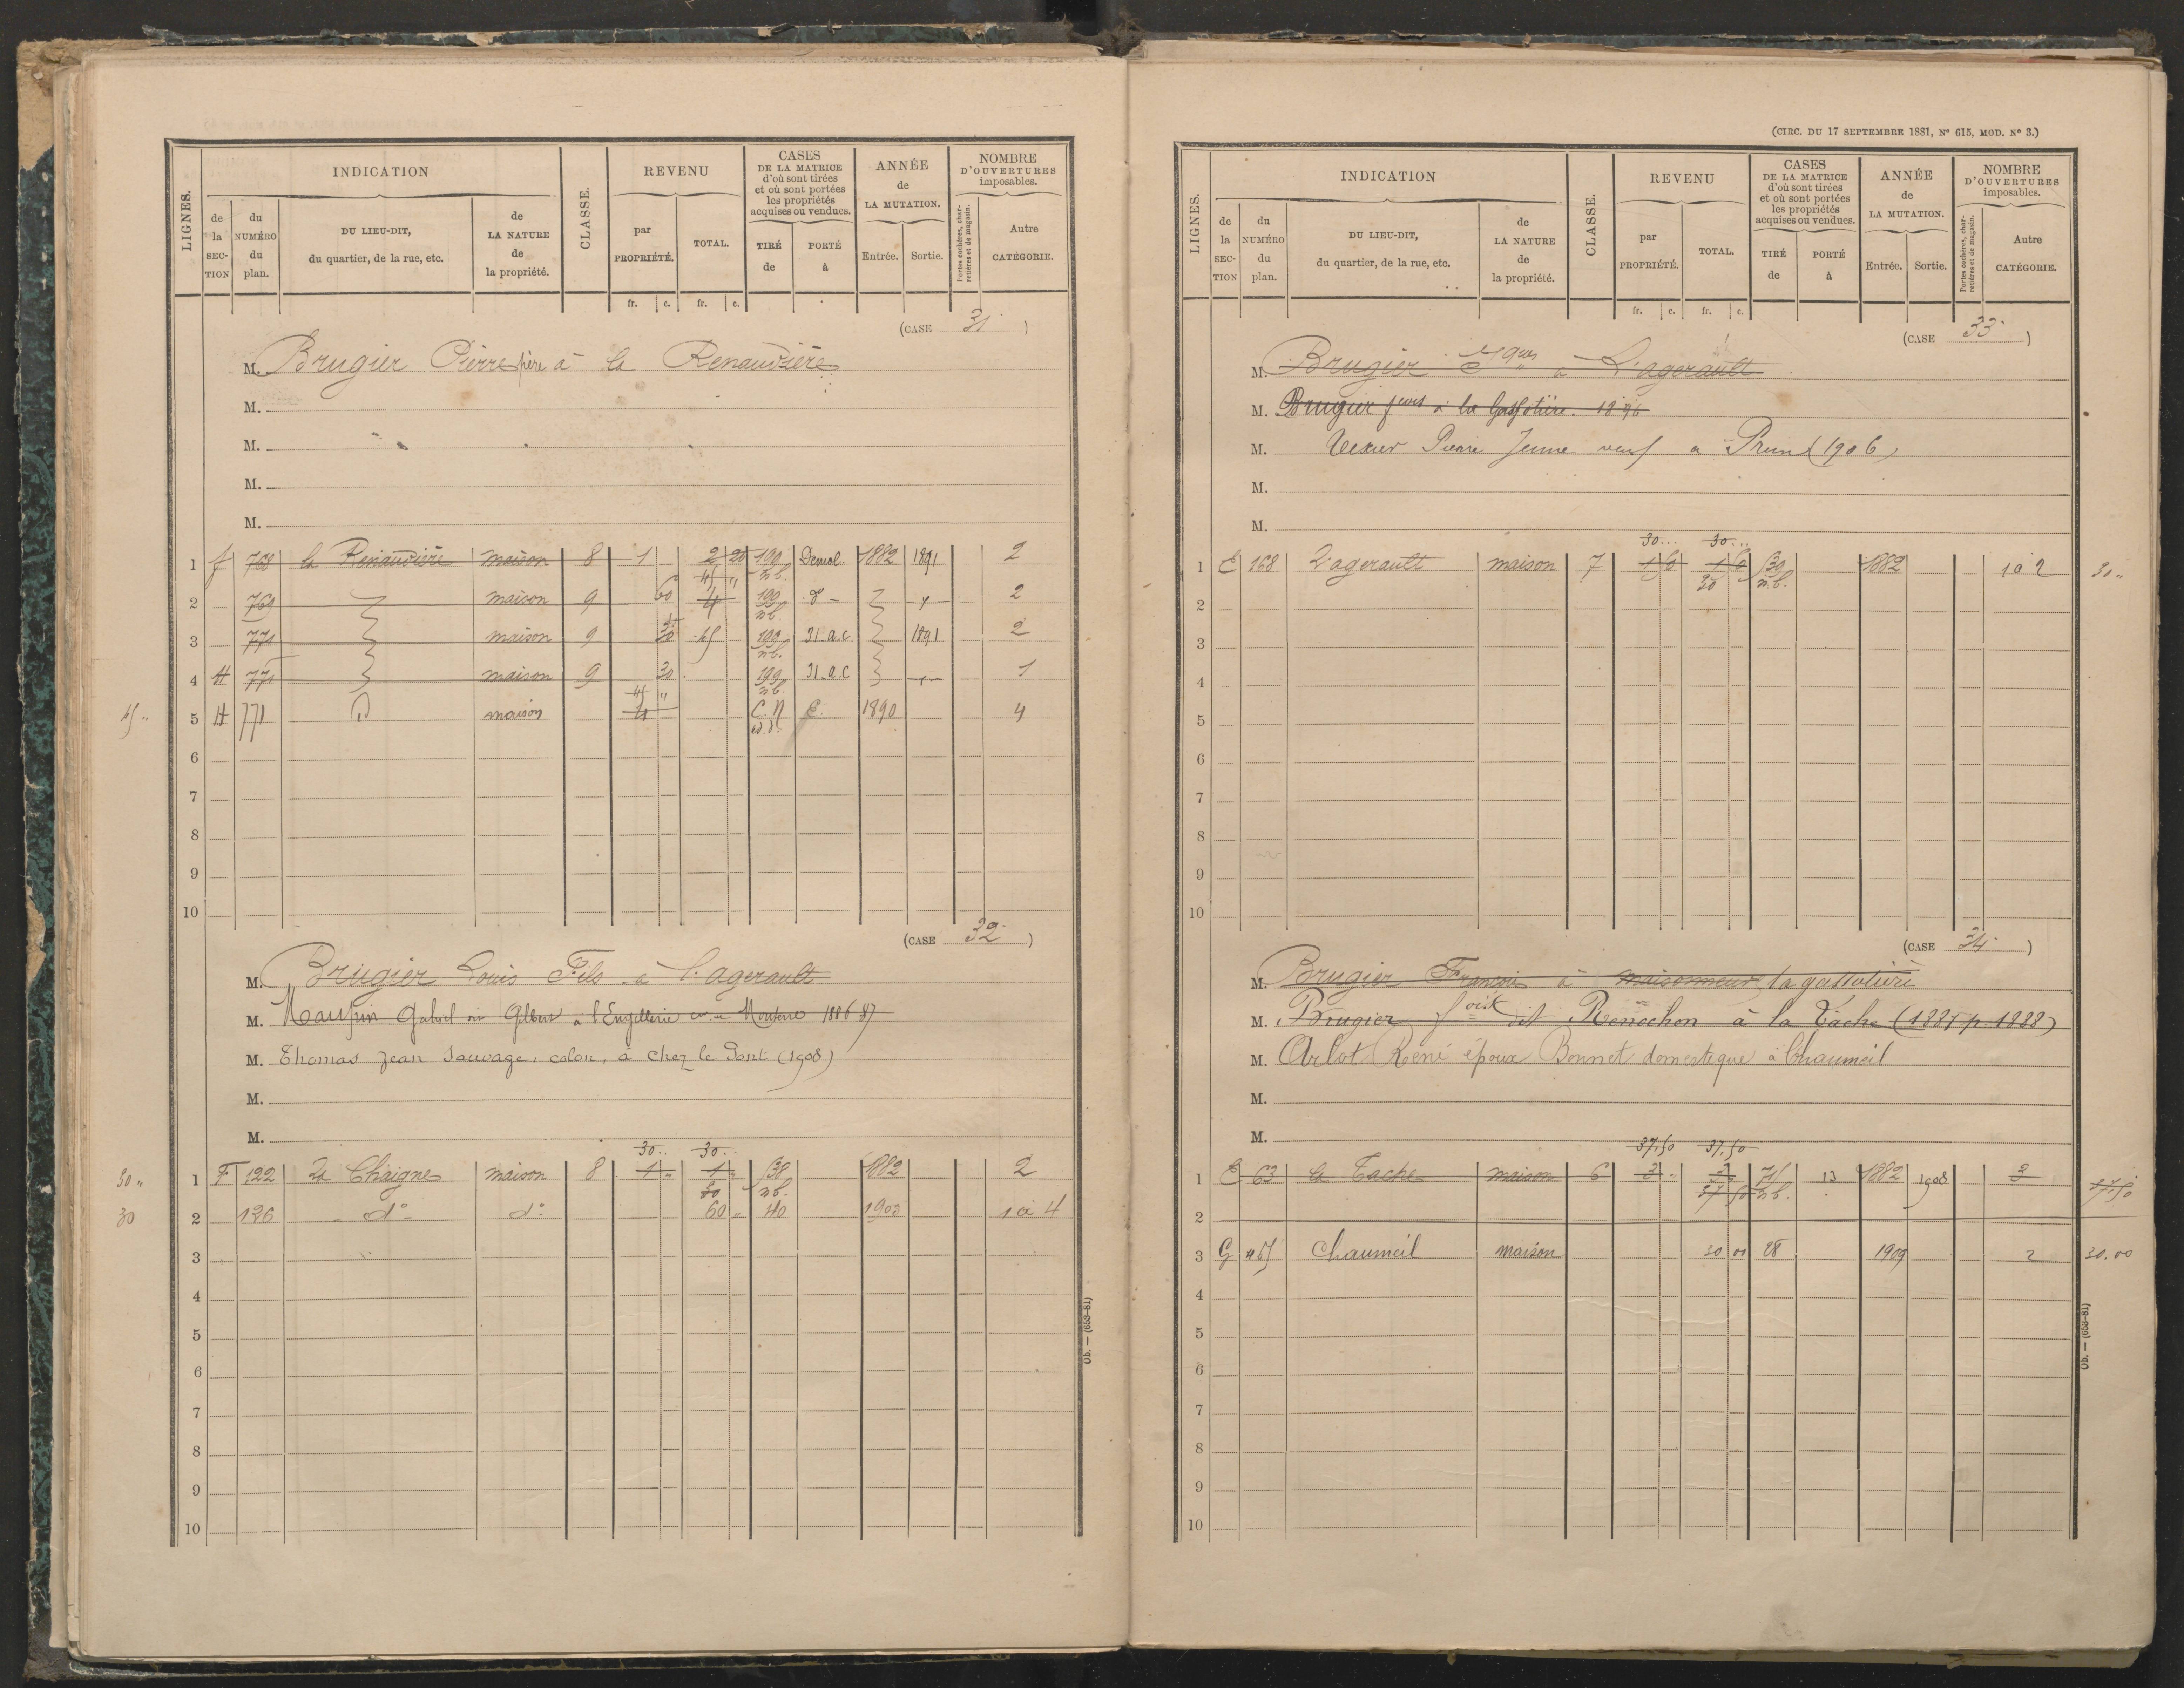 INDICATION
CLASSE.
REVENU
CASES
DE LA MATRICE
d'où sont tirées
et où sont portées
les propriétés
acquises ou vendues.
ANNÉE
de
LA MUTATION.
NOMBRE
D'OUVERTURES
imposables.
LIGNES.
de la SECTION
du NUMÉRO du plan.
DU LIEU-DIT,
du quartier, de la rue, etc.
de LA NATURE de la propriété.
par PROPRIÉTÉ.
TOTAL.
TIRÉ de
PORTÉ à
Entrée.
Sortie.
Portes cochères, charretières et de magasin.
Autre CATÉGORIE.
fr. c. fr. c.
(CASE 31)
M. Brugier Pierre père à la Renaudière
M.
M.
M.
M.
1 f 768 la Renaudière maison 8 1 2 20 190 n.b. Demol. 1882 1891 2
2 769 maison 9 60 4 190 n.b. 2
3 771 maison 9 30 45 190 n.b. 31 a.c 1891 2
4 H 771 maison 9 30 190 n.b. 31 a.c 1
45 " 5 H 771 D maison 45 " 4 C.N E. 1890 4
6
7
8
9
10
(CASE 32)
M. Brugier Louis Fils à l'agerault
M. Gabriel à l'Engellerie 1886 87
M. Thomas Jean Sauvage, colon, à Chez le Pont (1908)
M.
M.
30.. 30..
30 " 1 F 122 Le Chaigne maison 8 1 " 1 " 30 138 n.b. 1882 2
30 2 126 d° d° 60 " 40 1900 1 à 4
3
4
5
6
7
8
9
10
Ob. — (653-81)
(CIRC. DU 17 SEPTEMBRE 1881, N° 615, MOD. N° 3.)
INDICATION
CLASSE.
REVENU
CASES
DE LA MATRICE
d'où sont tirées
et où sont portées
les propriétés
acquises ou vendues.
ANNÉE
de
LA MUTATION.
NOMBRE
D'OUVERTURES
imposables.
LIGNES.
de la SECTION
du NUMÉRO du plan.
DU LIEU-DIT,
du quartier, de la rue, etc.
de LA NATURE de la propriété.
par PROPRIÉTÉ.
TOTAL.
TIRÉ de
PORTÉ à
Entrée.
Sortie.
Portes cochères, charretières et de magasin.
Autre CATÉGORIE.
fr. c. fr. c.
(CASE 33)
M. Brugier à L'agerault
M. Brugier à la 1896
M. Texier Pierre Jeune veuf à Prun (1906)
M.
M.
30... 30...
1 E 168 L'agerault maison 7 30 130 n.b. 1882 1 à 2 30 "
2
3
4
5
6
7
8
9
10
(CASE 34)
M. Brugier François à maisonneuve la gassotière
M. Brugier fçois dit Renechon à la Tâche (1887 p. 1888)
M. Arlot René époux Bonnet domestique à Chaumeil
M.
M.
37,50 37,50
1 E 63 la Tache maison 6 3 " 3 37 50 71 n.b. 13 1882 1908 3 37,50
2
3 G 457 Chaumeil maison 30 00 28 1909 2 30.00
4
5
6
7
8
9
10
Ob. — (653-81)